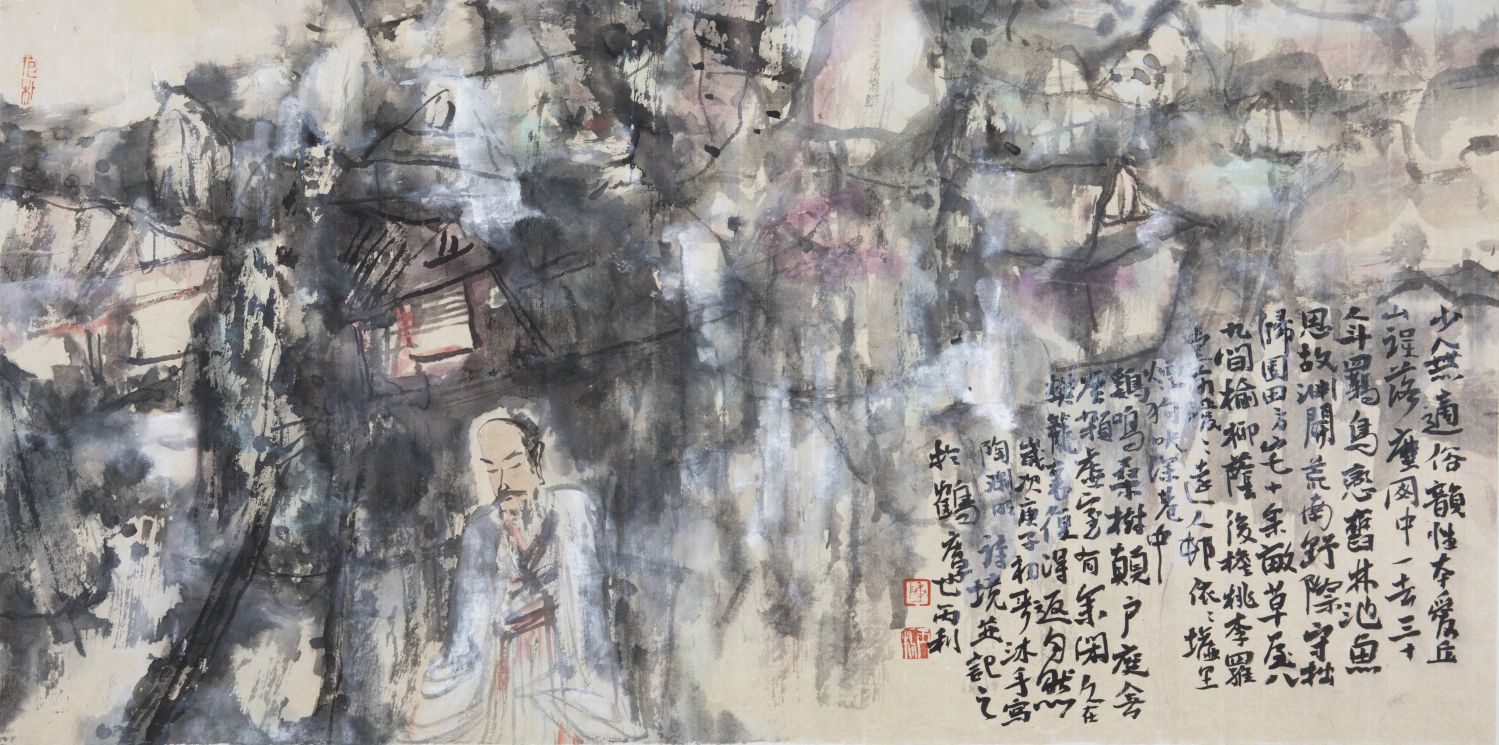 少無適俗韻性本愛丘
山誤落塵网中一去三十
年羈鳥戀舊林池魚
思故淵開荒南野際守拙
歸園田方宅十余畝草屋八
九間榆柳蔭後檐桃李羅
堂前曖々遠人邨依々墟里
煙狗吠深巷中
鷄鳴桑樹顛户庭
塵雜虛室有余閑久在
樊籠裏復得返自然
歲次庚子初沐手寫
陶淵明詩境並記之
於鶴廬丙利
抱朴